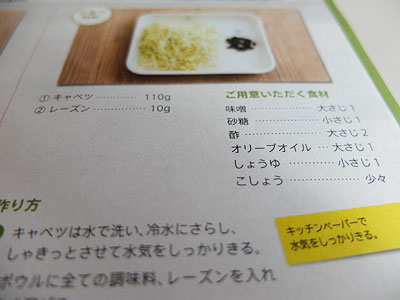 ① キャベツ ………… 110g
② レーズン ………… 10g
ご用意いただく食材
味噌 ………………… 大さじ1
砂糖 ………………… 小さじ1
酢 …………………… 大さじ2
オリーブオイル … 大さじ1
しょうゆ ………… 小さじ1
こしょう ………… 少々
作り方
キャベツは水で洗い、冷水にさらし、
しゃきっとさせて水気をしっかりきる。
ボウルに全ての調味料、レーズンを入れ
キッチンペーパーで
水気をしっかりきる。